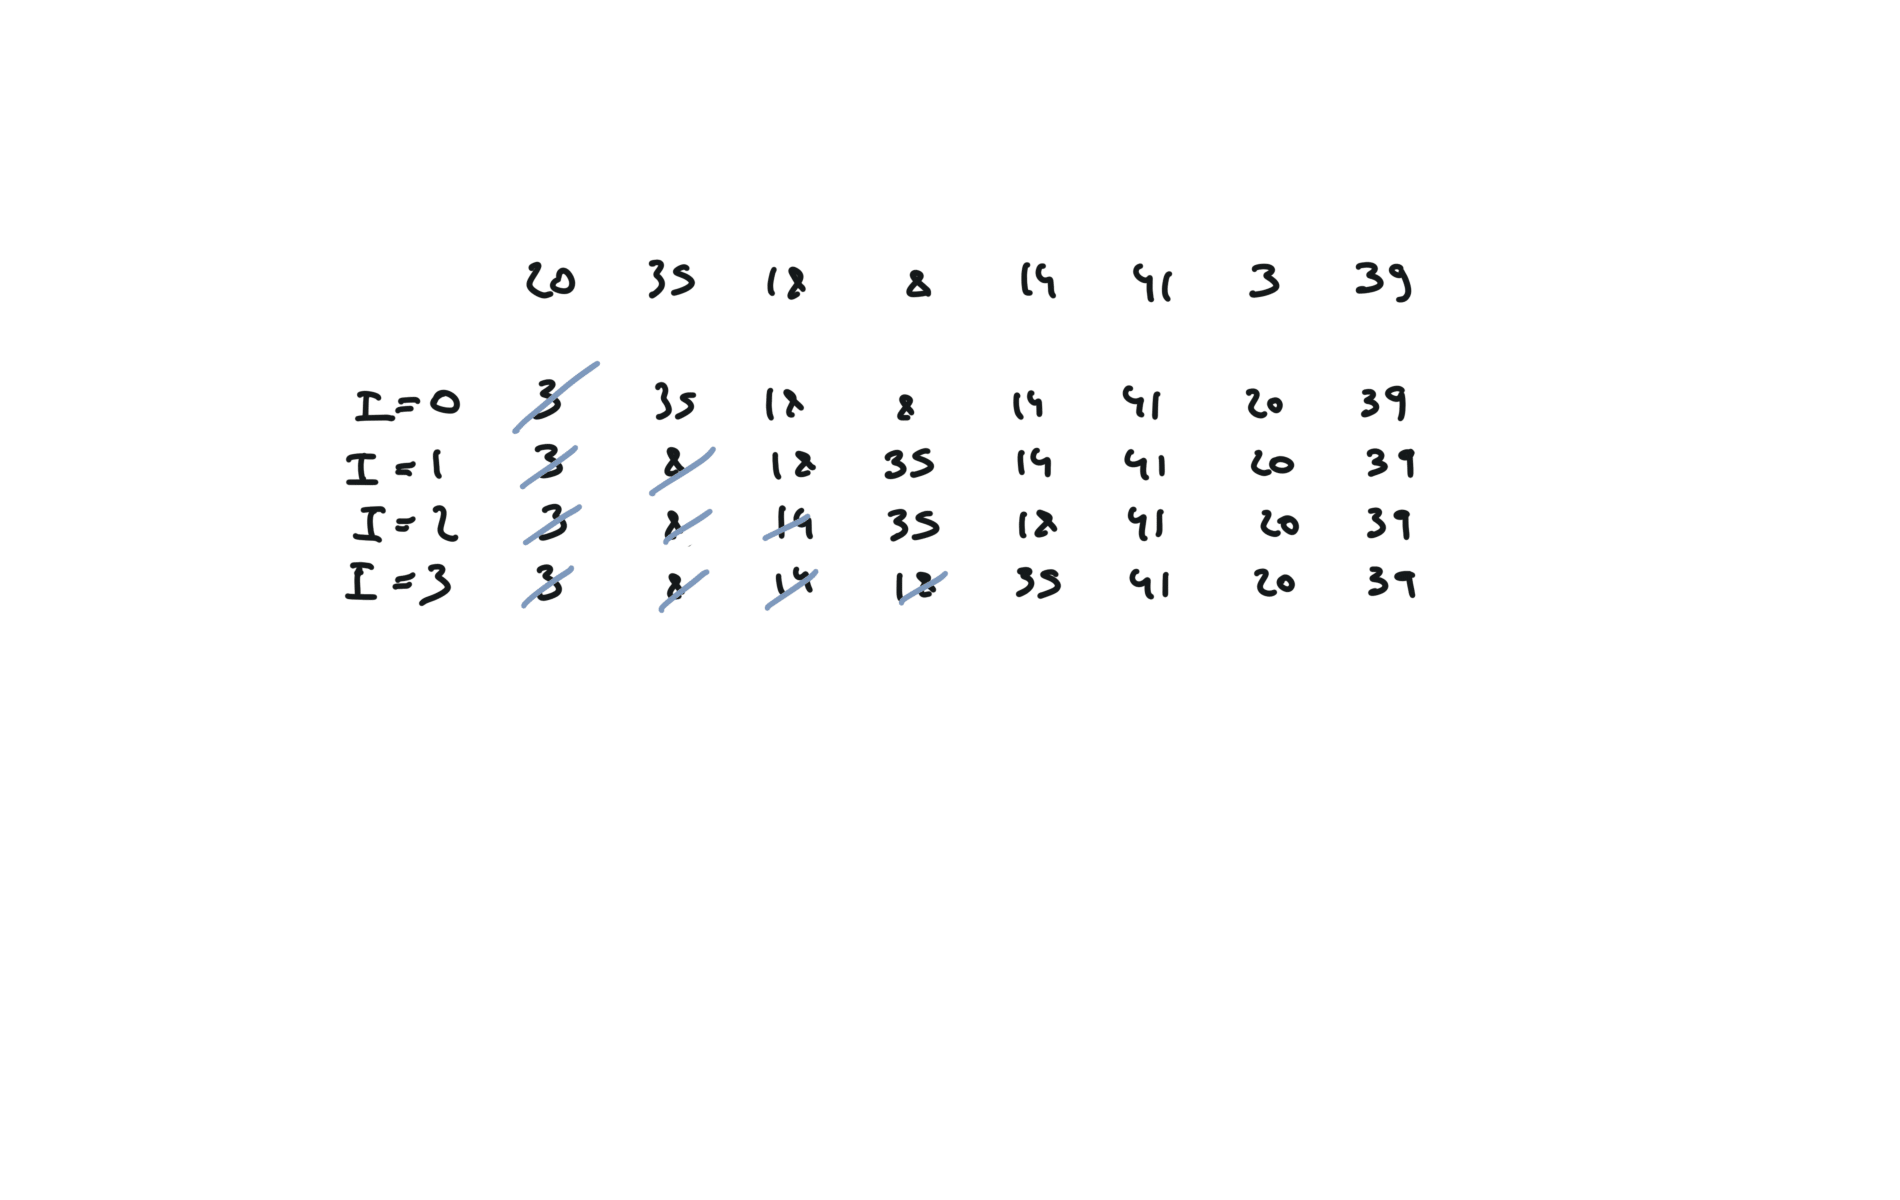 20 35 18 8 14 41 3 39
I=0 3 35 18 8 14 41 20 39
I=1 3 8 18 35 14 41 20 39
I=2 3 8 14 35 18 41 20 39
I=3 3 8 14 18 35 41 20 39